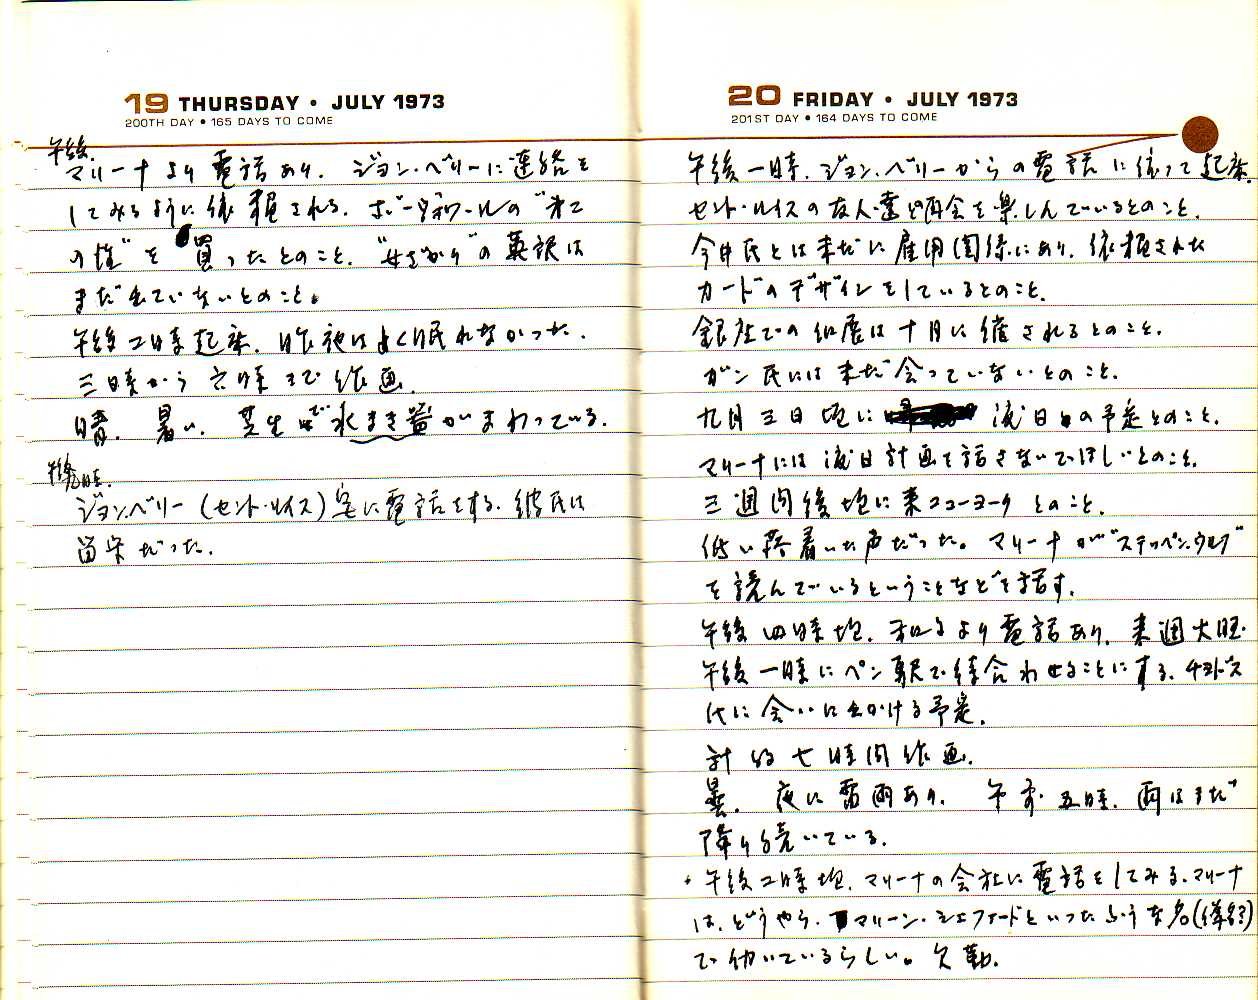 19 THURSDAY • JULY 1973
200TH DAY • 165 DAYS TO COME
午後、
マリーナより電話あり。ジョン・ベリーに連絡を
してみるように依頼される。ボーヴォワールの"第二
の性"を買ったとのこと。"女ざかり"の英訳は
まだ出ていないとのこと。
午後二時起床。昨夜はよく眠れなかった。
三時から六時まで作画。
晴。暑い。芝生で水まき器がまわっている。
ジョン・ベリー(セント・ルイス)宅に電話をする。彼氏は
留守だった。
20 FRIDAY • JULY 1973
201ST DAY • 164 DAYS TO COME
午後一時、ジョン・ベリーからの電話に依って起床。
セント・ルイスの友人達と再会を楽しんでいるとのこと。
今井氏とは未だに雇用関係にあり、依頼された
カードのデザインをしているとのこと。
銀座での個展は十月に催されるとのこと。
ガン氏には未だ会っていないとのこと。
九月三日頃に 渡日の予定とのこと。
マリーナには渡日計画を話さないでほしいとのこと。
三週間後頃に来ニューヨークとのこと。
低い落着いた声だった。マリーナが"ステッペン・ウルフ"
を読んでいるということなどを話す。
午後四時頃、和子より電話あり。来週火曜
午後一時にペン駅で待合わせることにする。
氏に会いに出かける予定。
計約七時間作画。
曇。夜に雷雨あり。午前五時、雨はまだ
降り続いている。
・午後二時頃、マリーナの会社に電話をしてみる。マリーナ
は、どうやら、マリーン・シェファードといったような名(偽名?)
で働いているらしい。欠勤。